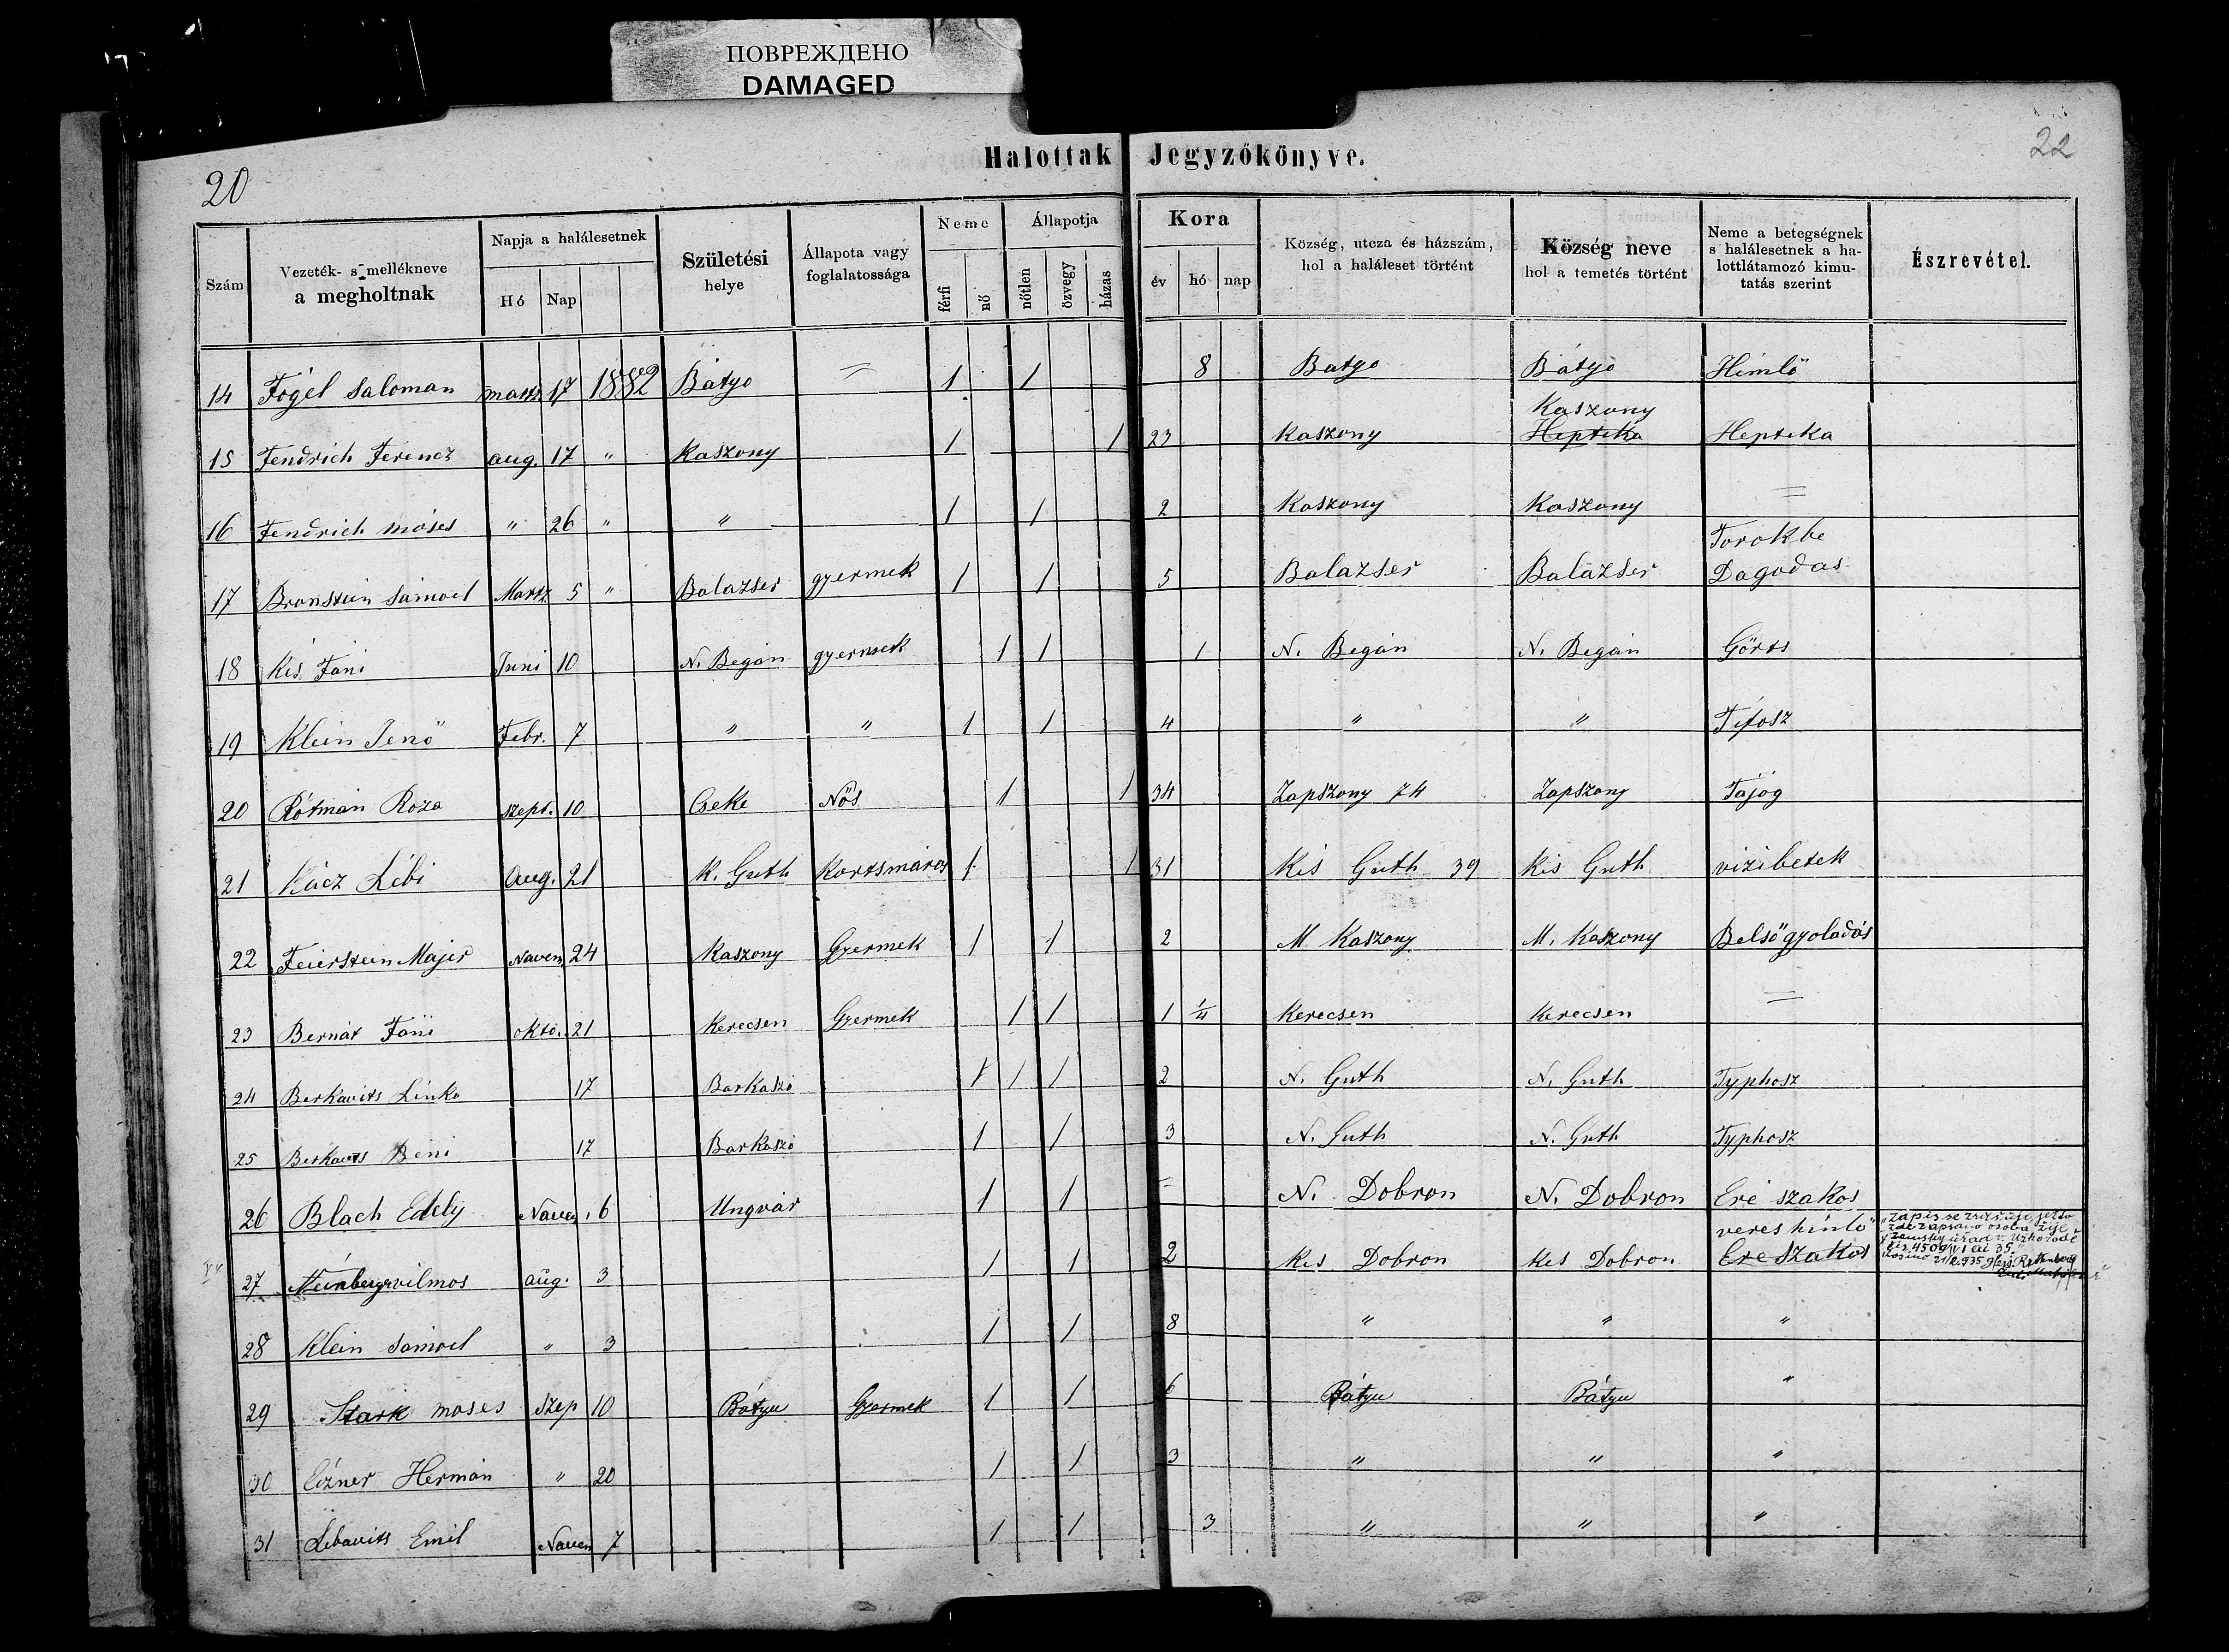 ПОВРЕЖДЕНО
DAMAGED
20
Halottak Jegyzőkönyve.
22
Szám
Vezeték- s mellékneve a megholtnak
Napja a halálesetnek
Hó Nap
Születési helye
Állapota vagy foglalatossága
Neme
férfi nő
Állapotja
nőtlen özvegy házas
Kora
év hó nap
Község, utcza és házszám, hol a haláleset történt
Község neve hol a temetés történt
Neme a betegségnek s halálesetnek a halottlátamozó kimutatás szerint
Észrevétel.
14 Fógel Saloman martz. 17 1882 Bátyo = 1 1 8 Batyo Bátyo Himlö
Kaszony
15 Fendrich Ferencz aug. 17 " Kaszony 1 1 23 Kaszony Heptika Heptika
16 Fendrich móses " 26 " " 1 1 2 Kaszony Kaszony =
Torokbe
17 Bronstein Sámoel Martz 5 " Balazser gyermek 1 1 5 Balazser Balázser Dagodas
18 Kis Fáni Juni 10 N. Begán gyermek 1 1 1 N. Begán N. Begán Görts
19 Klein Jenö Febr. 7 " " 1 1 4 " " Tifosz
20 Rótmán Roza szept. 10 Cseke Nös 1 1 34 Zapszony 74 Zapszony Tájog
21 Kácz Lébi Aug. 21 K. Guth Kortsmáros 1 1 31 Kis Guth 39 Kis Guth vizibetek
22 Feierstein Majer Navem 24 Kaszony Gyermek 1 1 2 M Kaszony M. Kaszony Belsögyoladás
23 Bernát Fáni okto. 21 Kerecsen Gyermek 1 1 1 Kerecsen Kerecsen =
24 Berkavits Linka 17 Barkaszó 1 1 1 2 N. Guth N. Guth Typhosz
25 Berkavits Beni 17 Barkaszó 1 1 3 N. Guth N. Guth Typhosz
26 Blach Edely Navem. 6 Ungvár 1 1 = N. Dobron N. Dobron Eré szakos
veres himlo
"Zápis se zrušuje, ježto
zde zapsaná osoba žije
zemský úřad v Užhorodě
35.
27 vilmos aug. 3 1 1 2 Kis Dobron Kis Dobron Ere szakos
28 Klein Sámoel " 3 1 1 8 " " "
29 Stark moses Szep 10 Bátyu Gyermek 1 1 6 Bátyu Bátyu "
30 Eizner Hermán " 20 1 1 3 " " "
31 Libavits Emil Navem 7 1 1 3 " " "